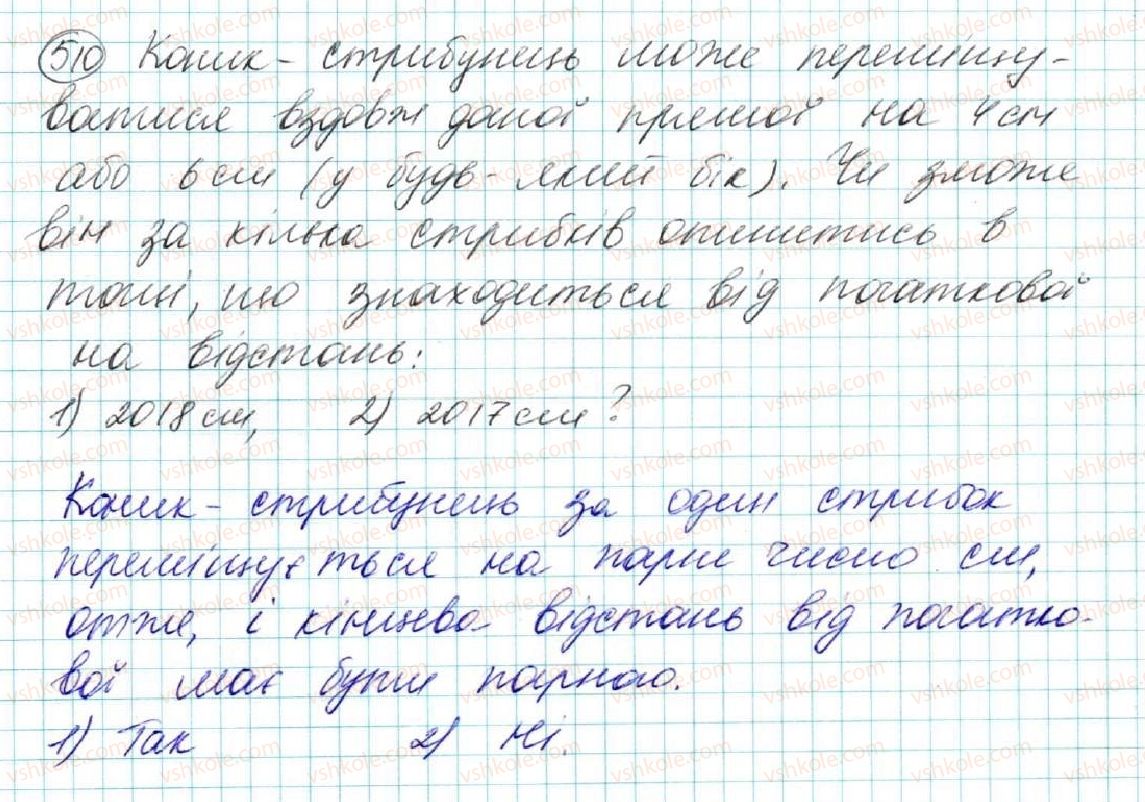 510 Коник-стрибунець може переміщу-
ватися вздовж даної прямої на 4 см
або 6 см (у будь-який бік). Чи зможе
він за кілька стрибків опинитись в
точці, що знаходиться від початкової
на відстань:
1) 2018 см, 2) 2017 см?
Коник-стрибунець за один стрибок
переміщується на парне число см,
отже, і кінцева відстань від початко-
вої має бути парною.
1) Так 2) Ні.
vshkole.com